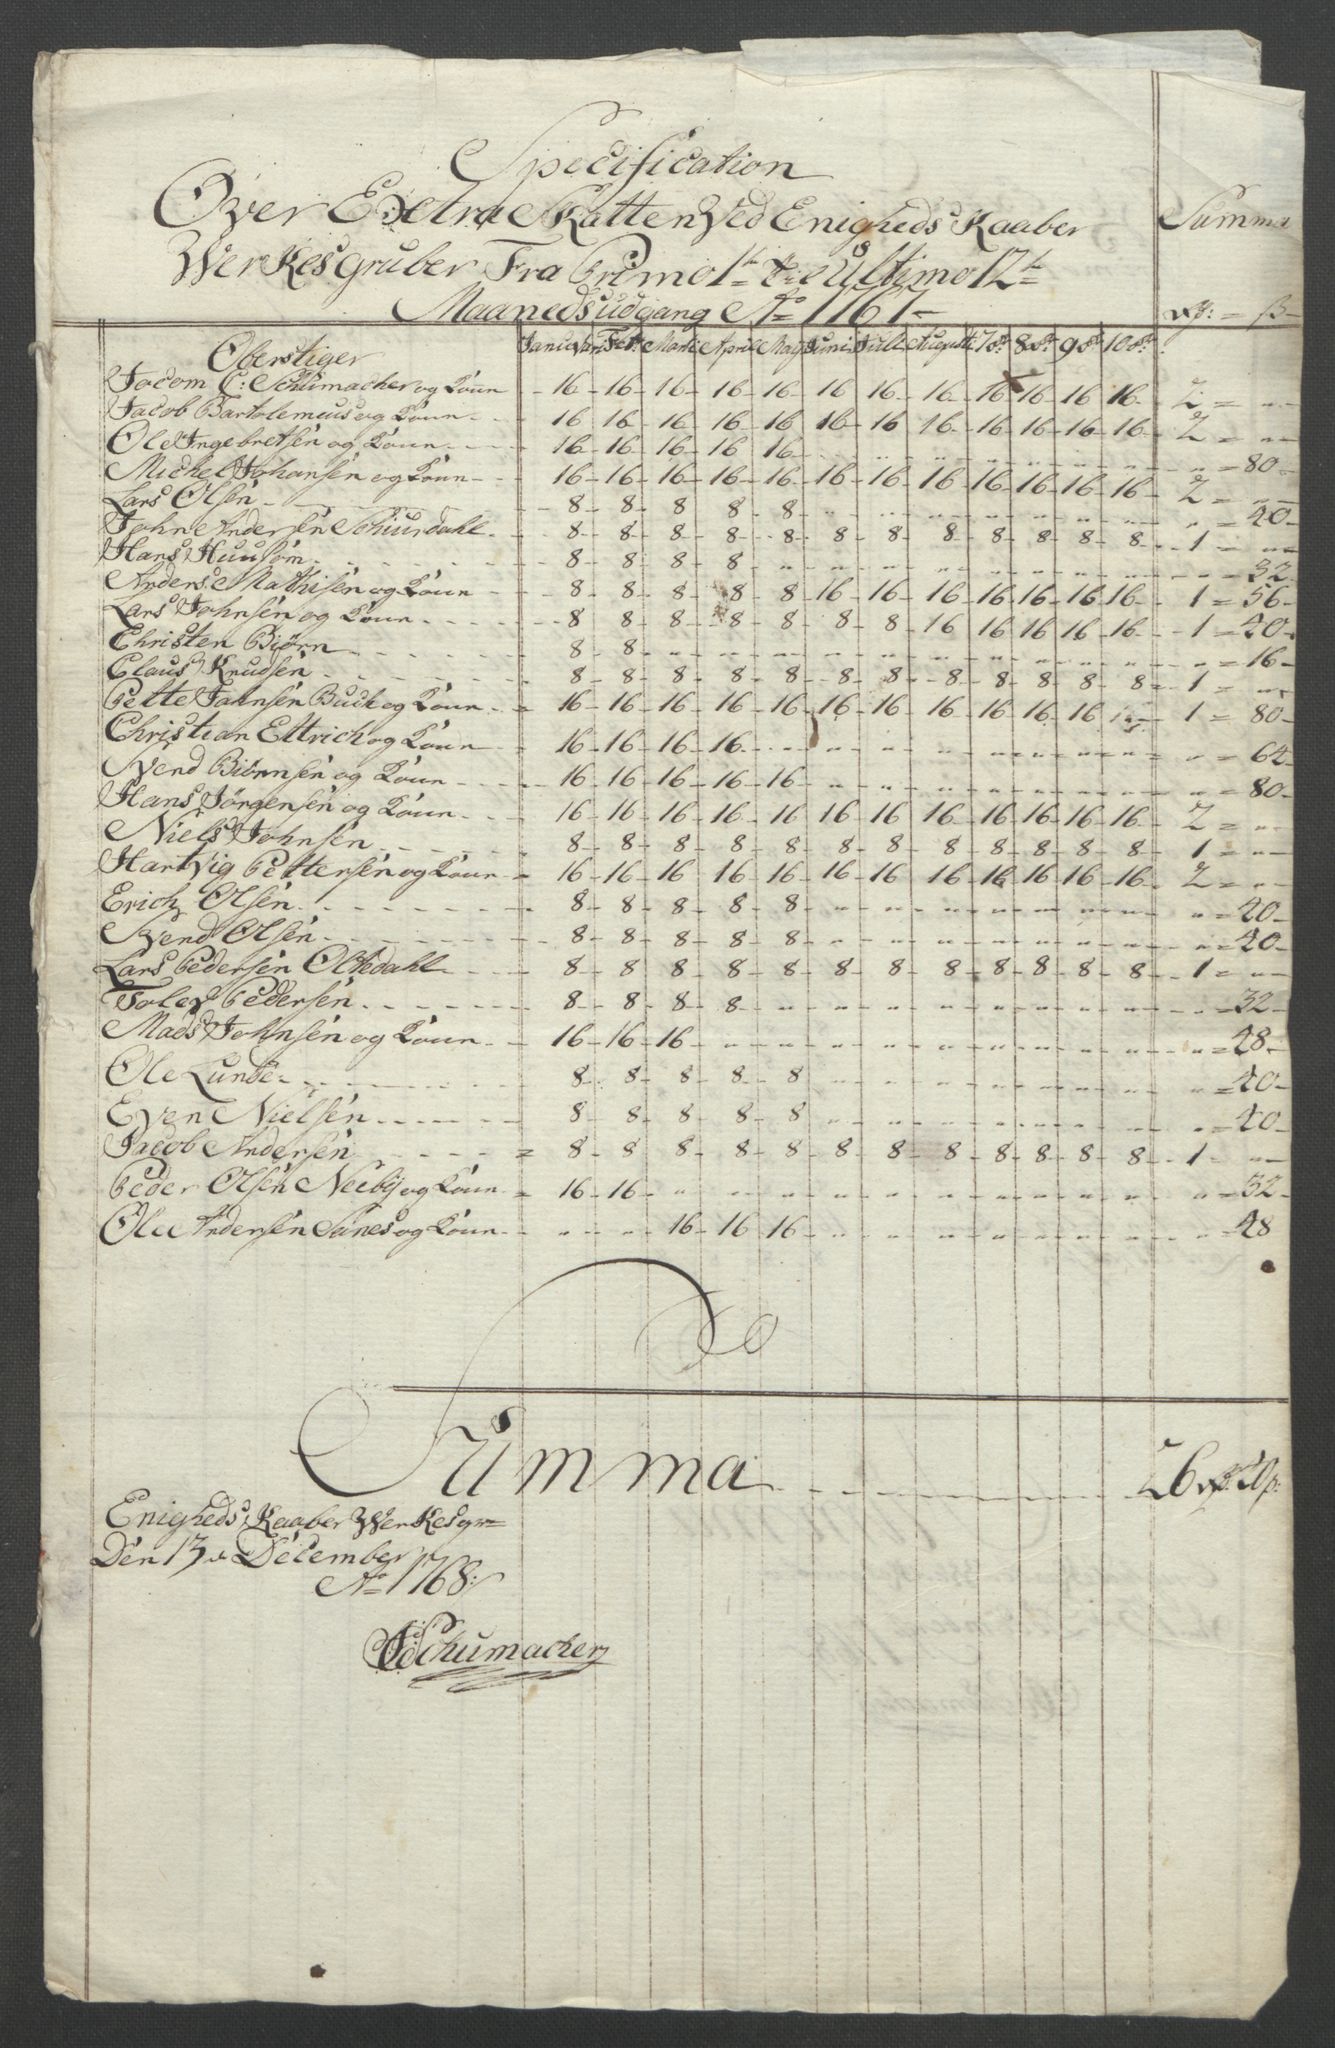 Specification
Over Extra Skatten Ved Enigheds Kaaber Summa
Werkes gruber Fra Primo 1te til Ultimo 12te
Maaneds udgang Ao 1767 rdr: = ß
Oberstiger Januarj Febr: Marti April Maj Juni Juli Augusti 7br 8br 9br 10br
Jocom C: Schumacher og Kone 16 16 16 16 16 16 16 16 16 16 16 16 2 = "
Jacob Bartolemeus og Kone 16 16 16 16 16 16 16 16 16 16 16 16 2 = "
Ole Ingebretsen og Kone 16 16 16 16 16 " " " " " " " " = 80
Michel Johansen og Kone 16 16 16 16 16 16 16 16 16 16 16 16 2 = "
Lars Olsen 8 8 8 8 8 " " " " " " " " = 40
John Andersen Schiurdahl 8 8 8 8 8 8 8 8 8 8 8 8 1 = "
Hans Huusom 8 8 8 8 " " " " " " " " " = 32
Anders Mathisen og Kone 8 8 8 8 8 16 16 16 16 16 16 16 1 = 56
Lars Johnsen og Kone 8 8 8 8 8 8 8 16 16 16 16 16 1 = 40
Christen Biørn 8 8 " " " " " " " " " " " = 16
Claus Knudsen 8 8 8 8 8 8 8 8 8 8 8 8 1 = "
Pette Johnsen Buch og Kone 16 16 16 16 16 16 16 16 16 16 16 1 = 80
Christian Ettrich og Kone 16 16 16 16 " " " " " " " " " = 64
Svend Biørnsen og Kone 16 16 16 16 16 " " " " " " " " = 80
Hans Jørgensen og Kone 16 16 16 16 16 16 16 16 16 16 16 16 2 = "
Niels Johnsen 8 8 8 8 8 8 8 8 8 8 8 8 1 = "
Hartvig Pettersen og Kone 16 16 16 16 16 16 16 16 16 16 16 16 2 = "
Erich Olsen 8 8 8 8 8 " " " " " " " " = 40
Svend Olsen 8 8 8 8 8 " " " " " " " " = 40
Lars Pedersen Oltedahl 8 8 8 8 8 8 8 8 8 8 8 8 1 = "
Tolev Pedersen 8 8 8 8 " " " " " " " " " = 32
Mads Johnsen og Kone 16 16 16 " " " " " " " " " " = 48
Ole Lunde 8 8 8 8 8 " " " " " " " " = 40
Even Nielsen 8 8 8 8 8 " " " " " " " " = 40
Jacob Andersen 8 8 8 8 8 8 8 8 8 8 8 8 1 "
Peder Olsen Neebij og Kone 16 16 " " " " " " " " " " " = 32
Ole Andersen Sanes og Kone " " 16 16 16 " " " " " " " " = 48
Summa 26 rdr
Enigheds Kaaber Werkes gr
Den 13de December
Ao 1768
Schumacher